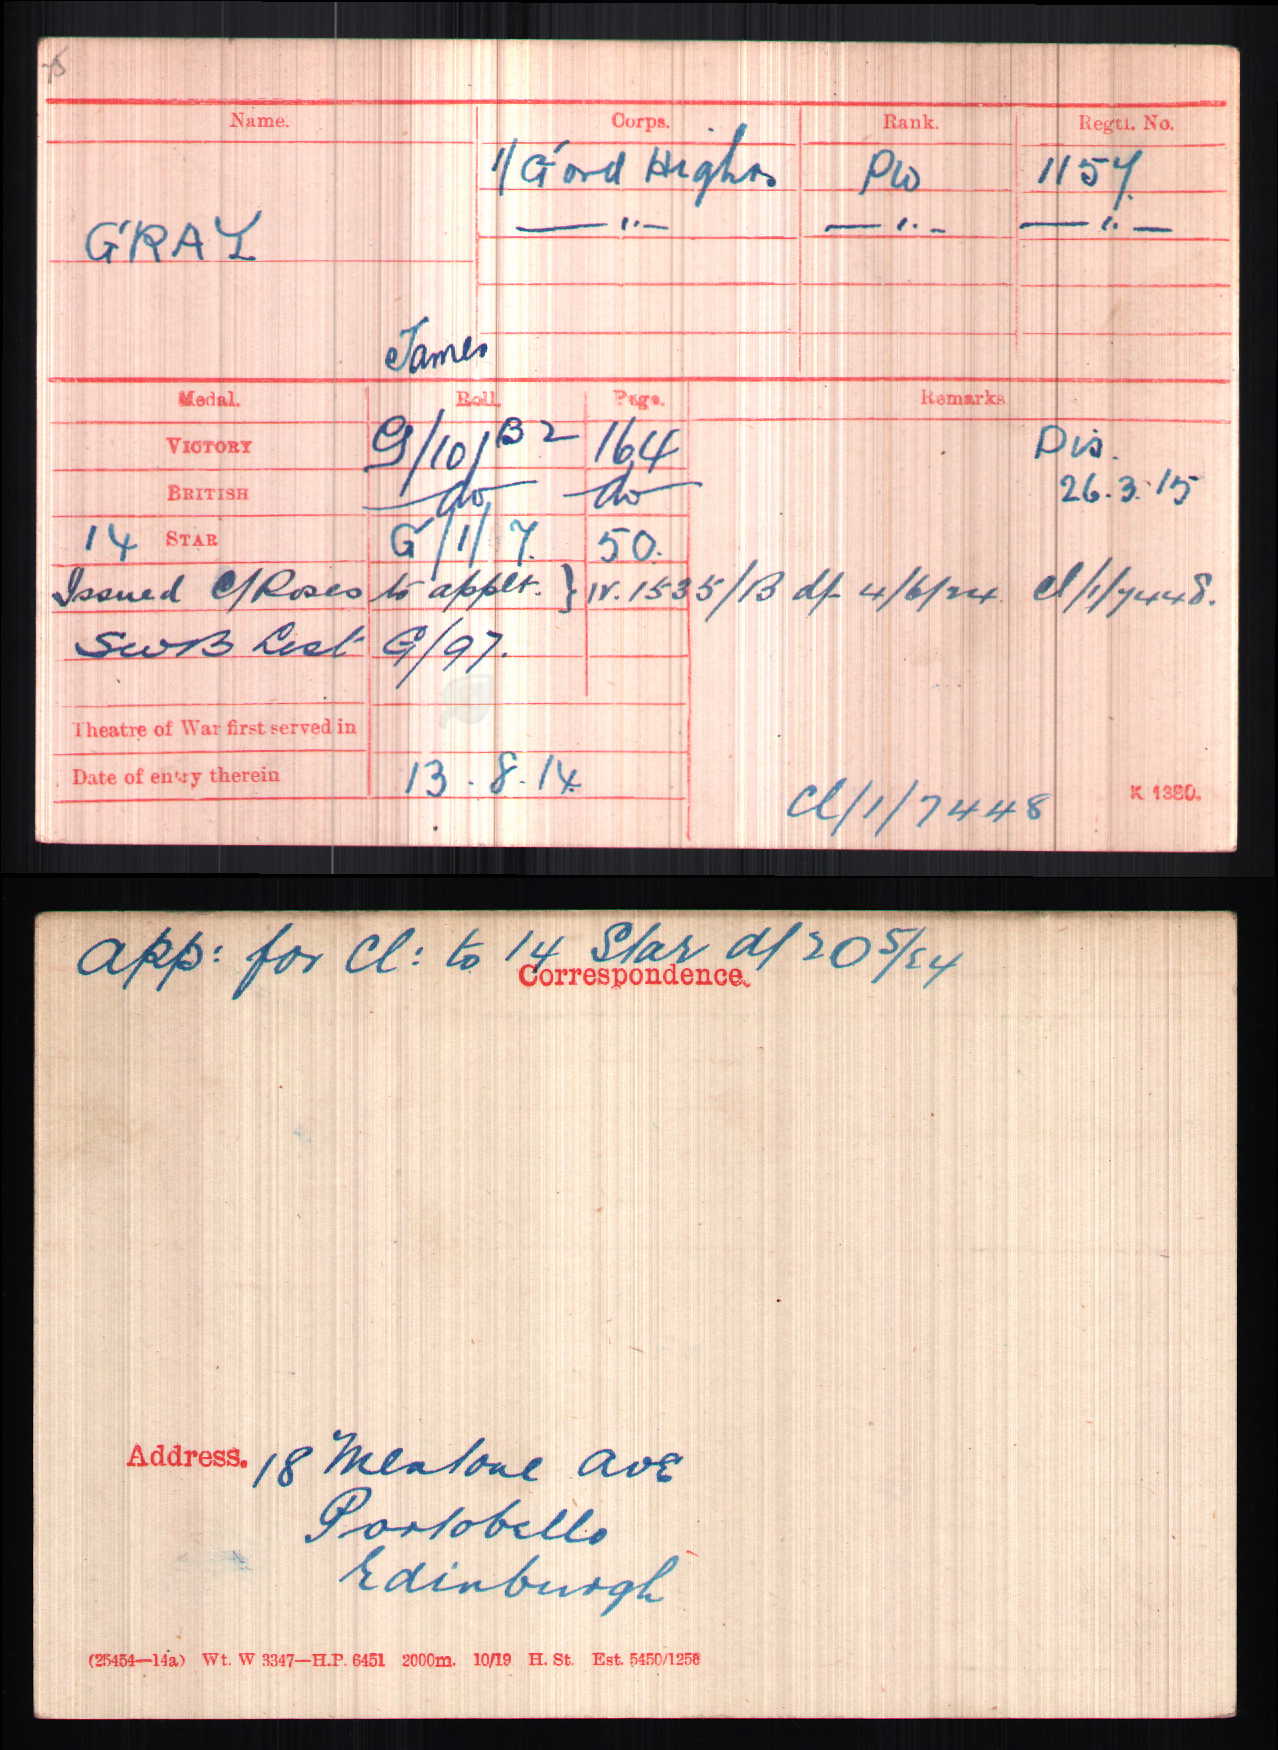 Name. Corps. Rank. Regtl. No.
1/ Gord Highrs Pte 1157
—"— —"— —"—
GRAY
James
Medal. Roll Page. Remarks
VICTORY G/10/B2 164 Dis.
BRITISH do do 26.3.15
14 STAR G/1/7. 50.
Issued C/Roses to applt. } IV. 1535/B df 4/6/24 Cl/1/7448.
SWB List G/97.
Theatre of War first served in
Date of entry therein 13.8.14
Cl/1/7448 K 1380.
app: for Cl: to 14 Star df 20 5/24
Correspondence.
Address. 18 Mentone Ave
Portobello
Edinburgh
(25454—14a) Wt. W 3347—H.P. 6451 2000m. 10/19 H. St. Est. 5450/1258